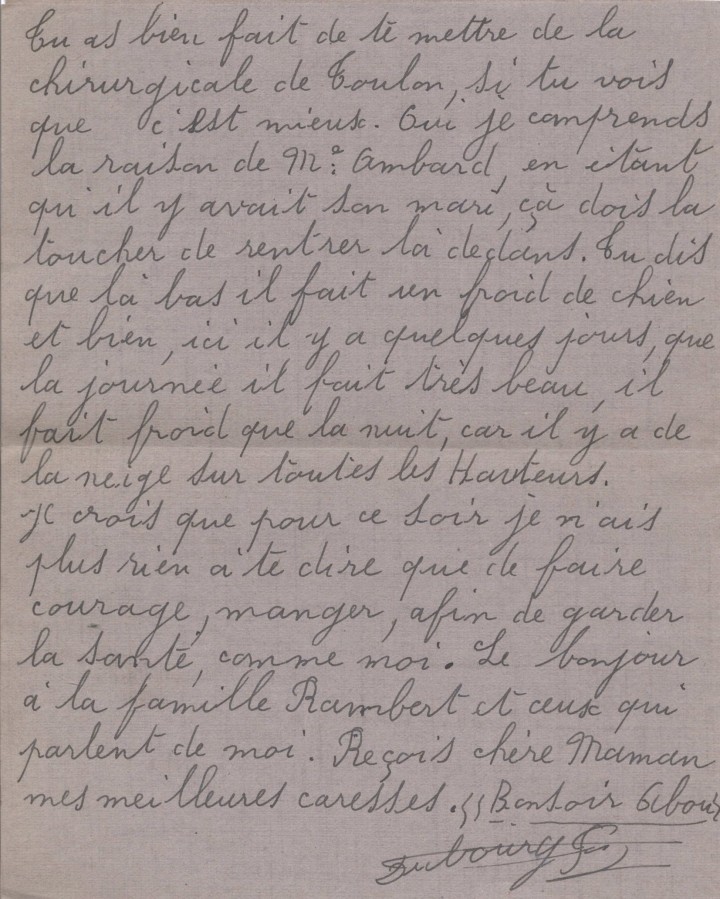 Tu as bien fait de te mettre de la
chirurgicale de Toulon, si tu vois
que c'est mieux. Oui je comprends
la raison de Me: Ambard, en étant
qu'il y avait son mari, çà dois la
toucher de rentrer là dedans. Tu dis
que là bas il fait un froid de chien
et bien, ici il y a quelques jours, que
la journée il fait très beau, il
fait froid que la nuit, car il y a de
la neige sur toutes les Hauteurs.
Je crois que pour ce soir je n'ais
plus rien à te dire que de faire
courage, manger, afin de garder
la santé, comme moi. Le bonjour
à la famille Rambert et ceux qui
parlent de moi. Reçois chère Maman
mes meilleures caresses. Bonsoir
Dubourg